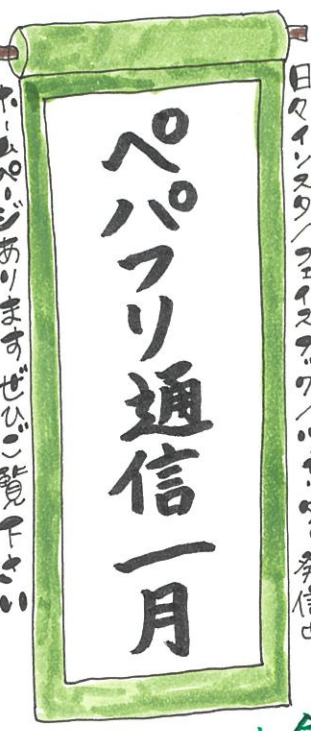 日々インスタ/フェイスブック/
発信中
ペパフリ通信一月
ホームページあります ぜひご覧下さい